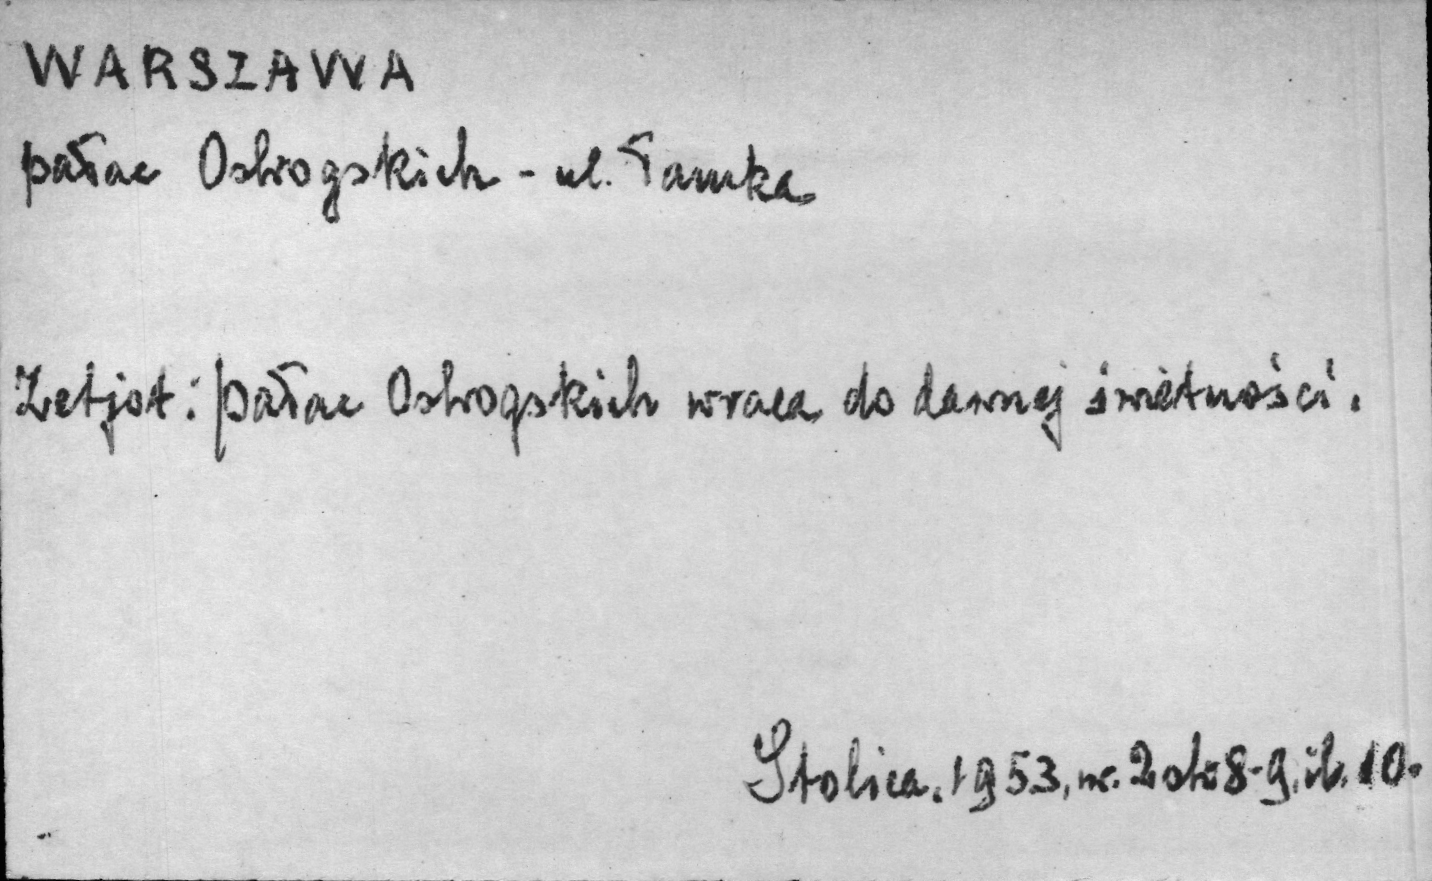 WARSZAWA
pałac Ostrogskich - ul. Tamka
Zetjot: Pałac Ostrogskich wraca do dawnej świetności.
Stolica. 1953, nr. 2 str 8-9, il. 10.